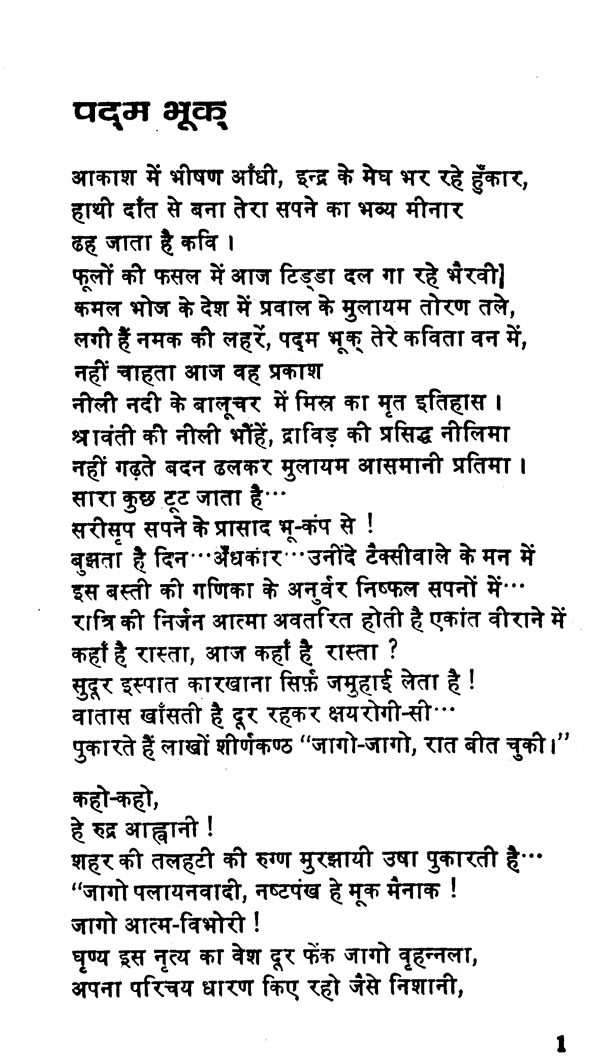 पद्म भूक्
आकाश में भीषण आँधी, इन्द्र के मेघ भर रहे हुँकार,
हाथी दाँत से बना तेरा सपने का भव्य मीनार
ढह जाता है कवि ।
फूलों की फसल में आज टिड्डा दल गा रहे भैरवी|
कमल भोज के देश में प्रवाल के मुलायम तोरण तले,
लगी हैं नमक की लहरें, पद्म भूक् तेरे कविता वन में,
नहीं चाहता आज वह प्रकाश
नीली नदी के बालूचर में मिस्र का मृत इतिहास ।
श्रावंती की नीली भौंहें, द्राविड़ की प्रसिद्ध नीलिमा
नहीं गढ़ते बदन ढलकर मुलायम आसमानी प्रतिमा ।
सारा कुछ टूट जाता है···
सरीसृप सपने के प्रासाद भू-कंप से !
बुझता है दिन···अँधकार···उनींदे टैक्सीवाले के मन में
इस बस्ती की गणिका के अनुर्वर निष्फल सपनों में···
रात्रि की निर्जन आत्मा अवतरित होती है एकांत वीराने में
कहाँ है रास्ता, आज कहाँ है रास्ता ?
सुदूर इस्पात कारखाना सिर्फ़ जमुहाई लेता है !
वातास खाँसती है दूर रहकर क्षयरोगी-सी···
पुकारते हैं लाखों शीर्णकण्ठ “जागो-जागो, रात बीत चुकी।”
कहो-कहो,
हे रुद्र आह्वानी !
शहर की तलहटी की रुग्ण मुरझायी उषा पुकारती है···
“जागो पलायनवादी, नष्टपंख हे मूक मैनाक !
जागो आत्म-विभोरी !
घृण्य इस नृत्य का वेश दूर फेंक जागो वृहन्नला,
अपना परिचय धारण किए रहो जैसे निशानी,
1